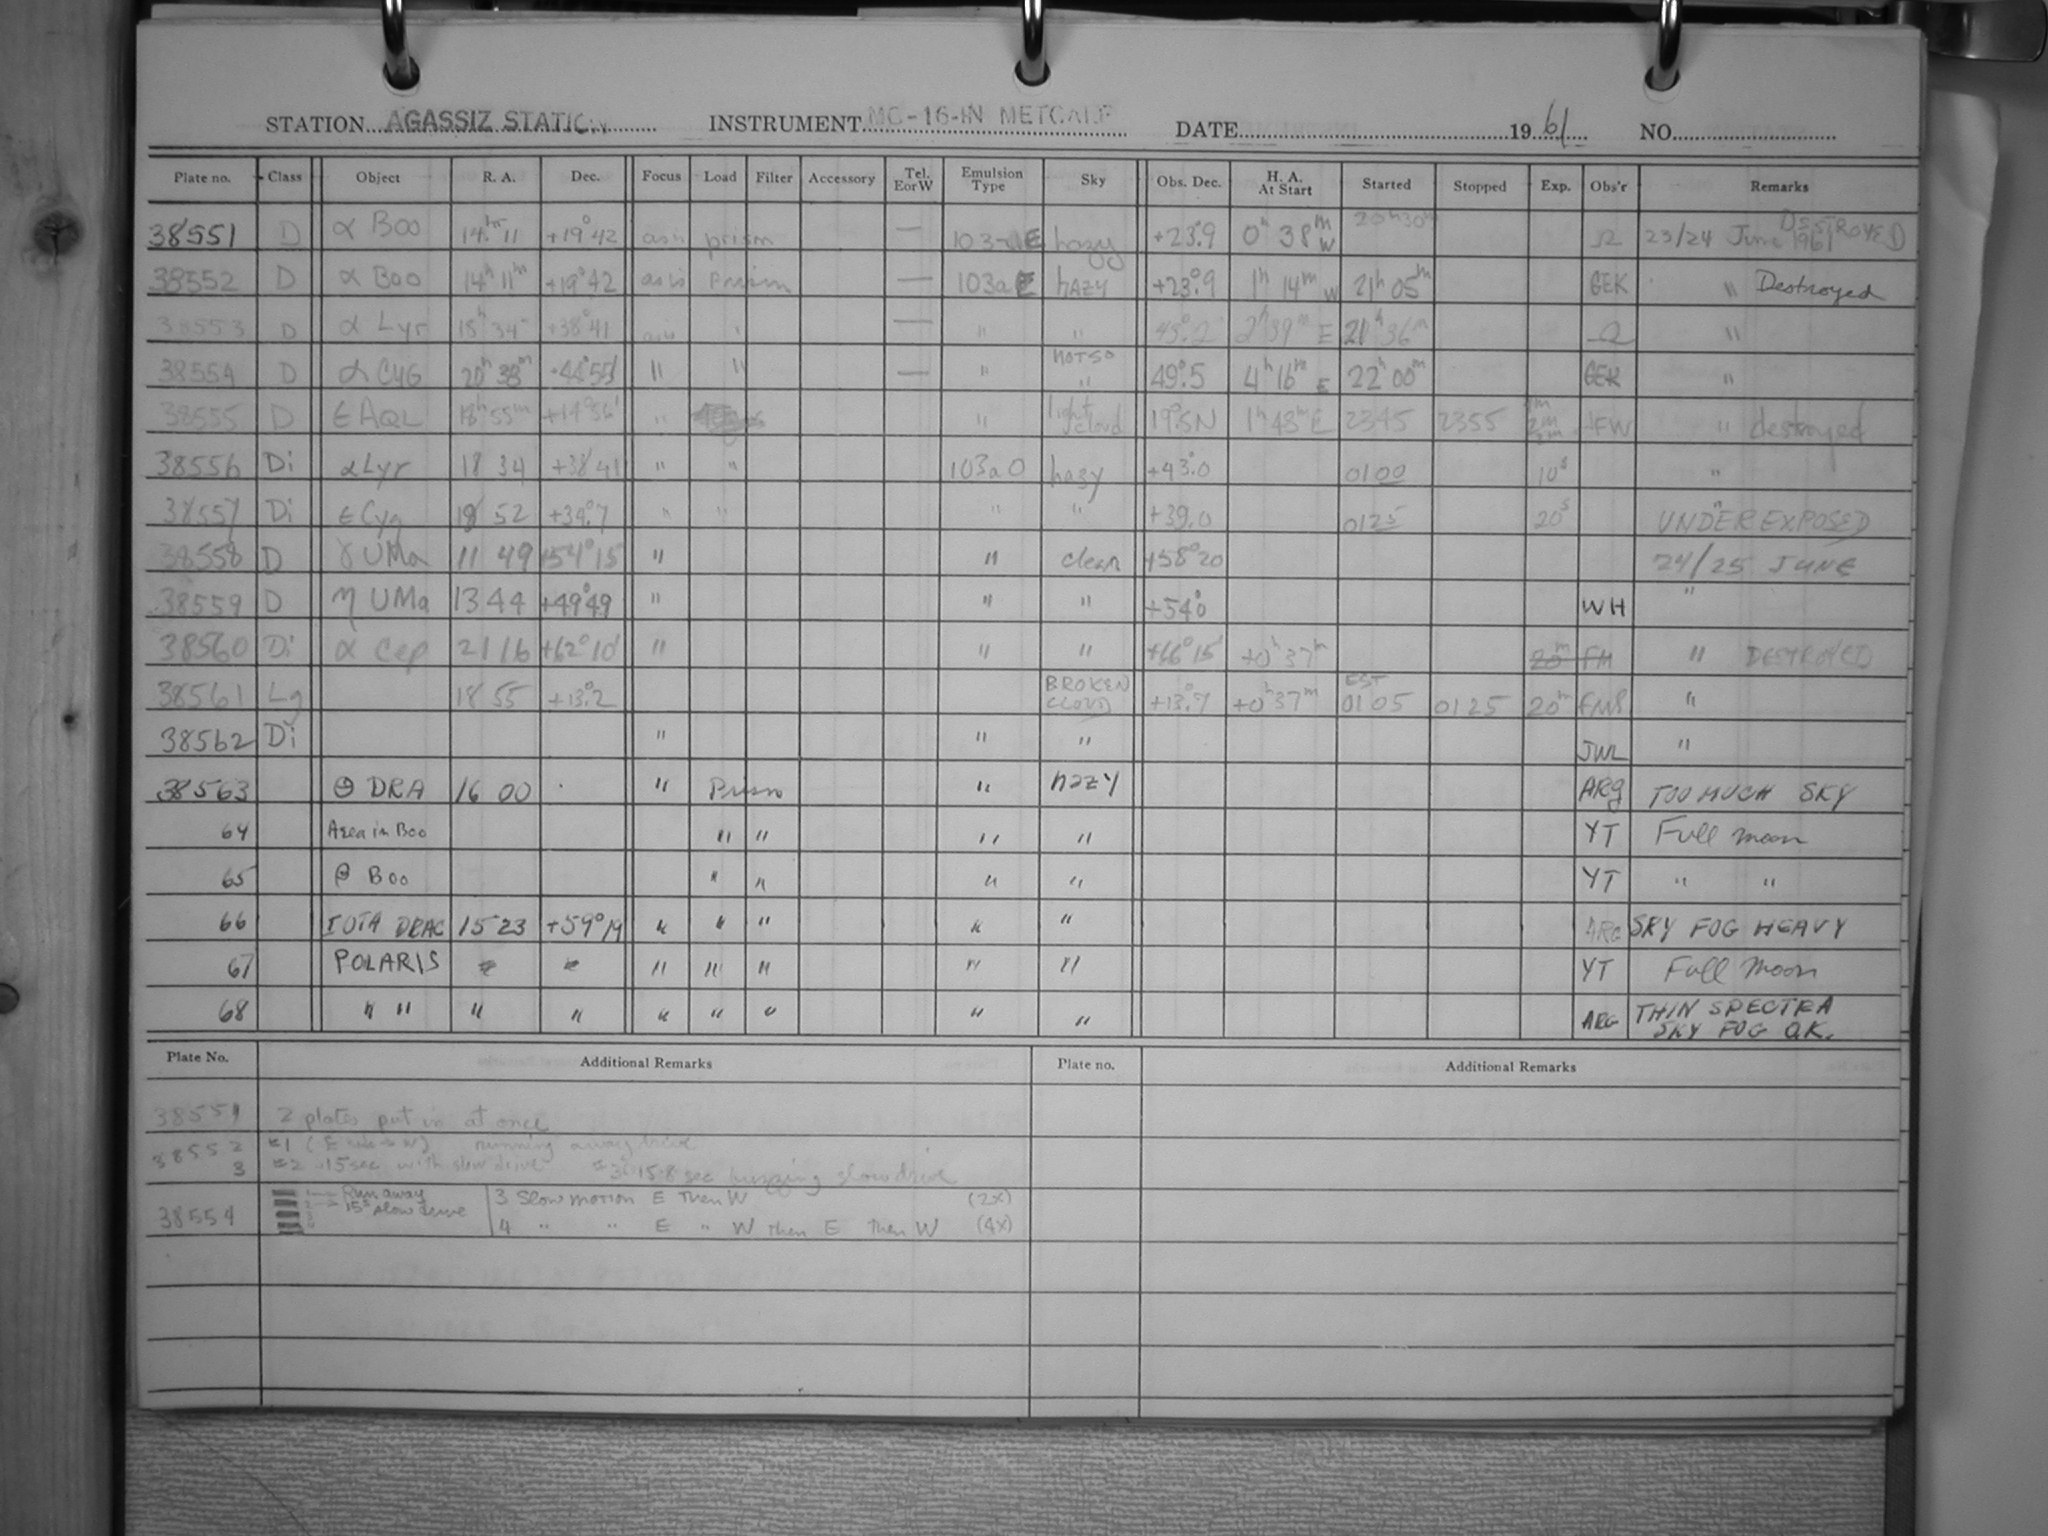 STATION AGASSIZ STATION INSTRUMENT MC-16-IN METCALF DATE 1961 NO.
Plate no. Class Object R. A. Dec. Focus Load Filter Accessory Tel. E or W Emulsion Type Sky Obs. Dec. H. A. At Start Started Stopped Exp. Obs'r Remarks
38551 D α Boo 14 hr 11 +19° 42 as is prism — hazy +23°.9 0h 38m W 20h 30m Ω 23/24 June 1961 DESTROYED
38552 D α Boo 14h 11m +19° 42 as is Prism — 103aE hAZY +23°.9 1h 14m W 21h 05m GEK " Destroyed
38553 D α Lyr 18h 34 +38° 41 as is " — " " 43°.2 2h 39m E 21h 36m Ω "
38554 D α CYG 20h 38m +44° 55' " " — " NOT SO " 49°.5 4h 16m E 22h 00m GEK "
38555 D ε AQL 18h 55m +14° 56' " " light cloud 19°.5N 1h 48m E 2345 2355 JFW " destroyed
38556 Di α Lyr 18 34 +38 41 " " 103a O hazy +43°.0 0100 10s "
38557 Di ε Cyg 18 52 +34°.7 " " " " +39.0 0125 20s " UNDEREXPOSED
38558 D γ UMa 11 49 +54° 15 " " clear +58° 20 24/25 JUNE
38559 D η UMa 13 44 +49° 49 " " " +54°.0 WH "
38560 Di α Cep 21 16 +62° 10' " " " +66° 15' +0h 37m 20m FM " DESTROYED
38561 Lg 18 55 +13°.2 BROKEN CLOUD +13°.7 +0h 37m EST 0105 0125 20m "
38562 Di " " " JWL "
38563 Θ DRA 16 00 " Prism " hazy ARG TOO MUCH SKY
64 Area in Boo " " " " YT Full moon
65 Boo " " " " YT " "
66 IOTA DRAC 15 23 +59° 19 " " " " " ARG SKY FOG HEAVY
67 POLARIS " " " " " YT Full Moon
68 " " " " " " " " " ARG THIN SPECTRA SKY FOG O.K.
Plate No. Additional Remarks Plate no. Additional Remarks
38551 2 plates put in at once
38552 #1 (E side to W) running away drive
3 #2 15 sec with slow drive #3 15.8 sec slow drive
38554 1 Run away 2 15s slow drive
3 Slow motion E then W (2x)
4 " " E " W then E then W (4x)